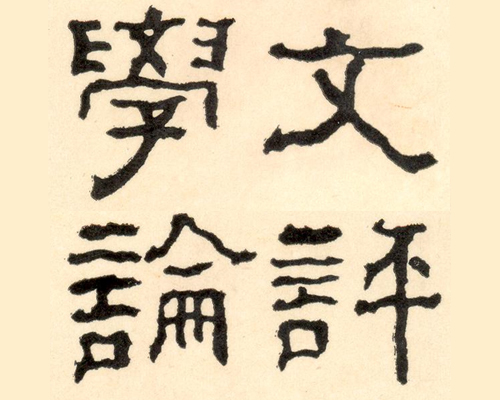 文學
評論